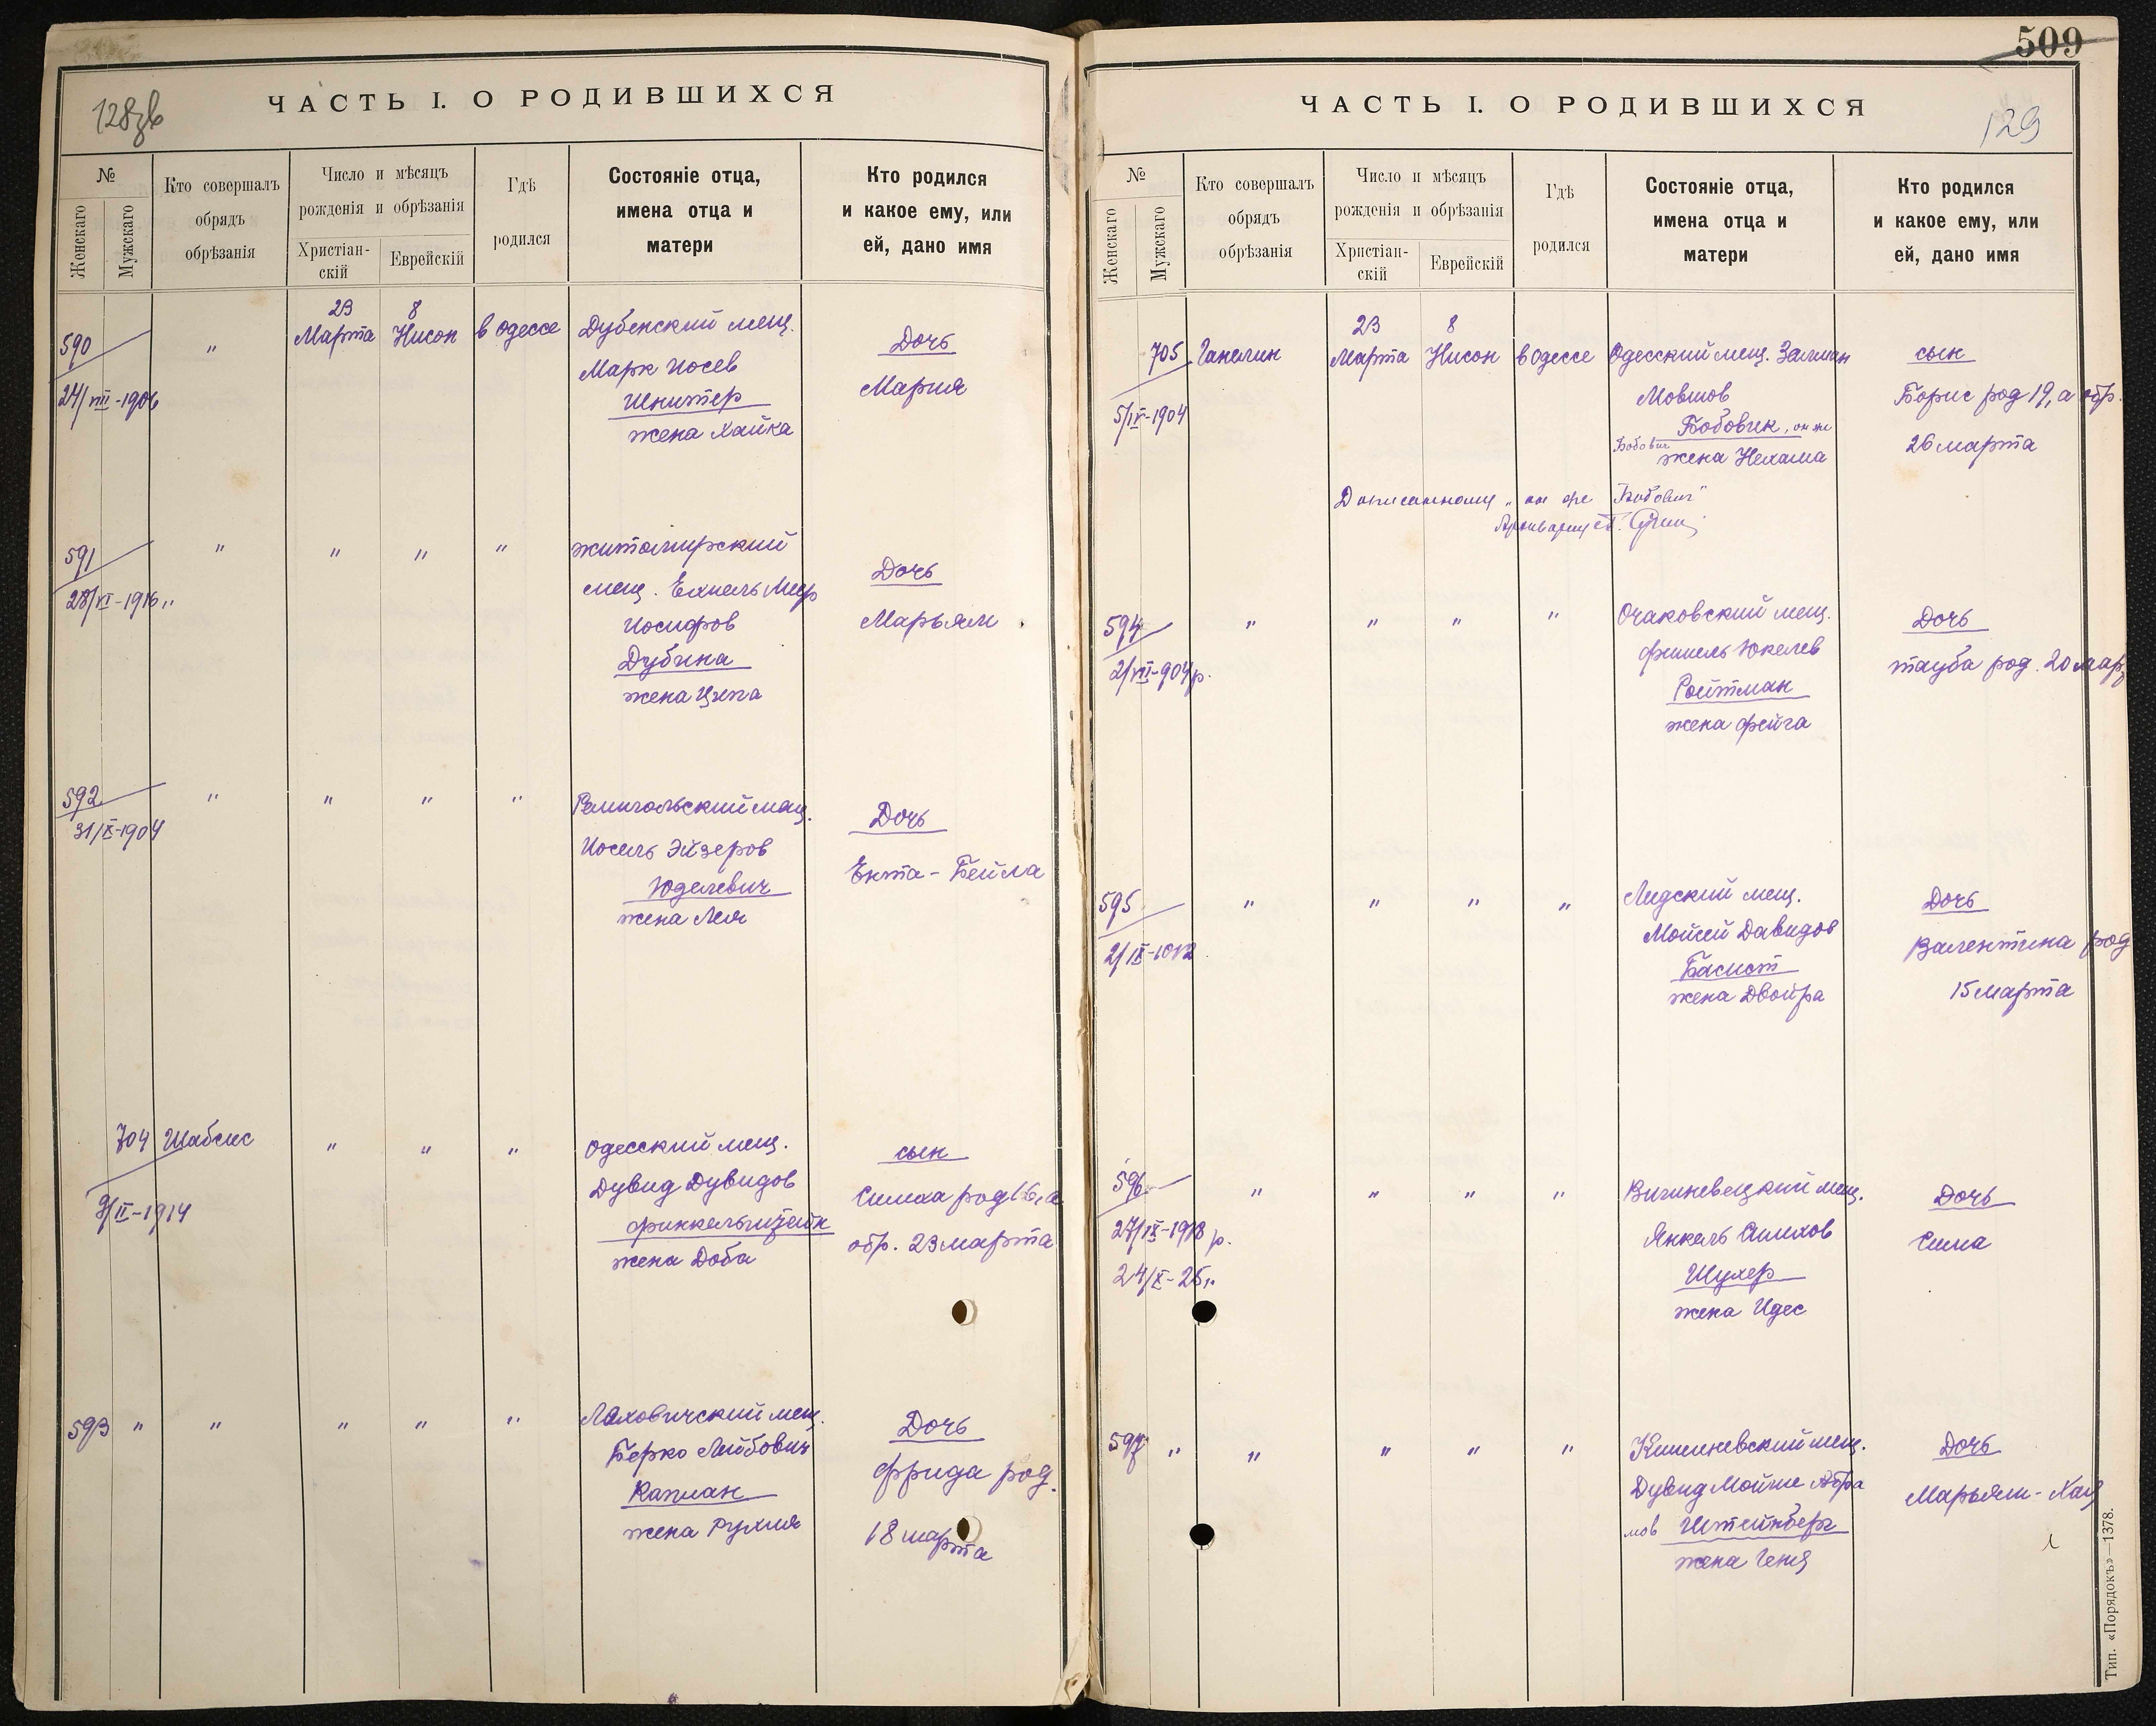 128зв
ЧАСТЬ I. О РОДИВШИХСЯ
№
Женскаго
Мужскаго
Кто совершалъ
обрядъ
обрѣзанія
Число и мѣсяцъ
рожденія и обрѣзанія
Христіан-
скій
Еврейскій
Гдѣ
родился
Состояніе отца,
имена отца и
матери
Кто родился
и какое ему, или
ей, дано имя
23 8
590 " Марта Нисон в Одессе Дубенский мещ. Дочь
24/VIII-1906 Марк Иосев Мария
Шнитер
жена Хайка
591 " " " " житомирский Дочь
мещ. Ехиель Меер
28/VI-1916 " Иосифов Марьям
Дубина
жена Ципа
592 " " " " Ремигольский мещ. Дочь
31/X-1904 Иосель Эйзеров Ента-Бейла
Юделевич
жена Лея
704 Шабсис " " " Одесский мещ. сын
9/II-1914 Дувид Дувидов Симха род 16, а
Финкельштейн обр. 23 марта
жена Доба
593 " " " " " Ляховичский мещ. Дочь
Берко Лейбович Фрида род.
Каплан 18 марта
жена Рухля
509
ЧАСТЬ I. О РОДИВШИХСЯ
129
№
Женскаго
Мужскаго
Кто совершалъ
обрядъ
обрѣзанія
Число и мѣсяцъ
рожденія и обрѣзанія
Христіан-
скій
Еврейскій
Гдѣ
родился
Состояніе отца,
имена отца и
матери
Кто родился
и какое ему, или
ей, дано имя
23 8
705 Ганелин Марта Нисон в Одессе Одесский мещ. Залман сын
5/IV-1904 Мовшов Борис род 19, а обр.
Бобовик, он же 26 марта
Бобович жена Нехама
Дописанному "он же Бобович"
594 " " " " Очаковский мещ. Дочь
2/VII-904 р. Фишель Юкелев Тауба род. 20 мар
Ройтман
жена Фейга
595 " " " " Лидский мещ. Дочь
Мойсей Давидов Валентина род
Басист 15 марта
жена Двойра
596 " " " " мещ. Дочь
27/IX-1918 р. Янкель Симхов Сима
24/X-25 г. Шухер
жена Идес
597 " " " " " Кишиневский мещ. Дочь
Дувид Мойше Абра Марьям-Хая
мов Штейнберг
жена Геня
Тип. «Порядокъ»—1378.